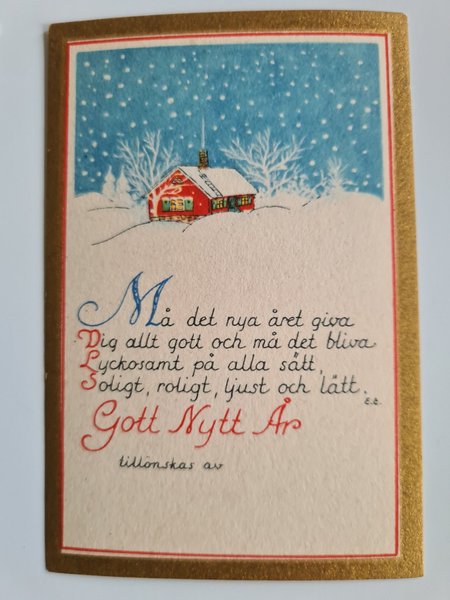 Må det nya året giva
Dig allt gott och må det bliva
Lyckosamt på alla sätt,
Soligt, roligt, ljust och lätt.
E.E.
Gott Nytt År
tillönskas av